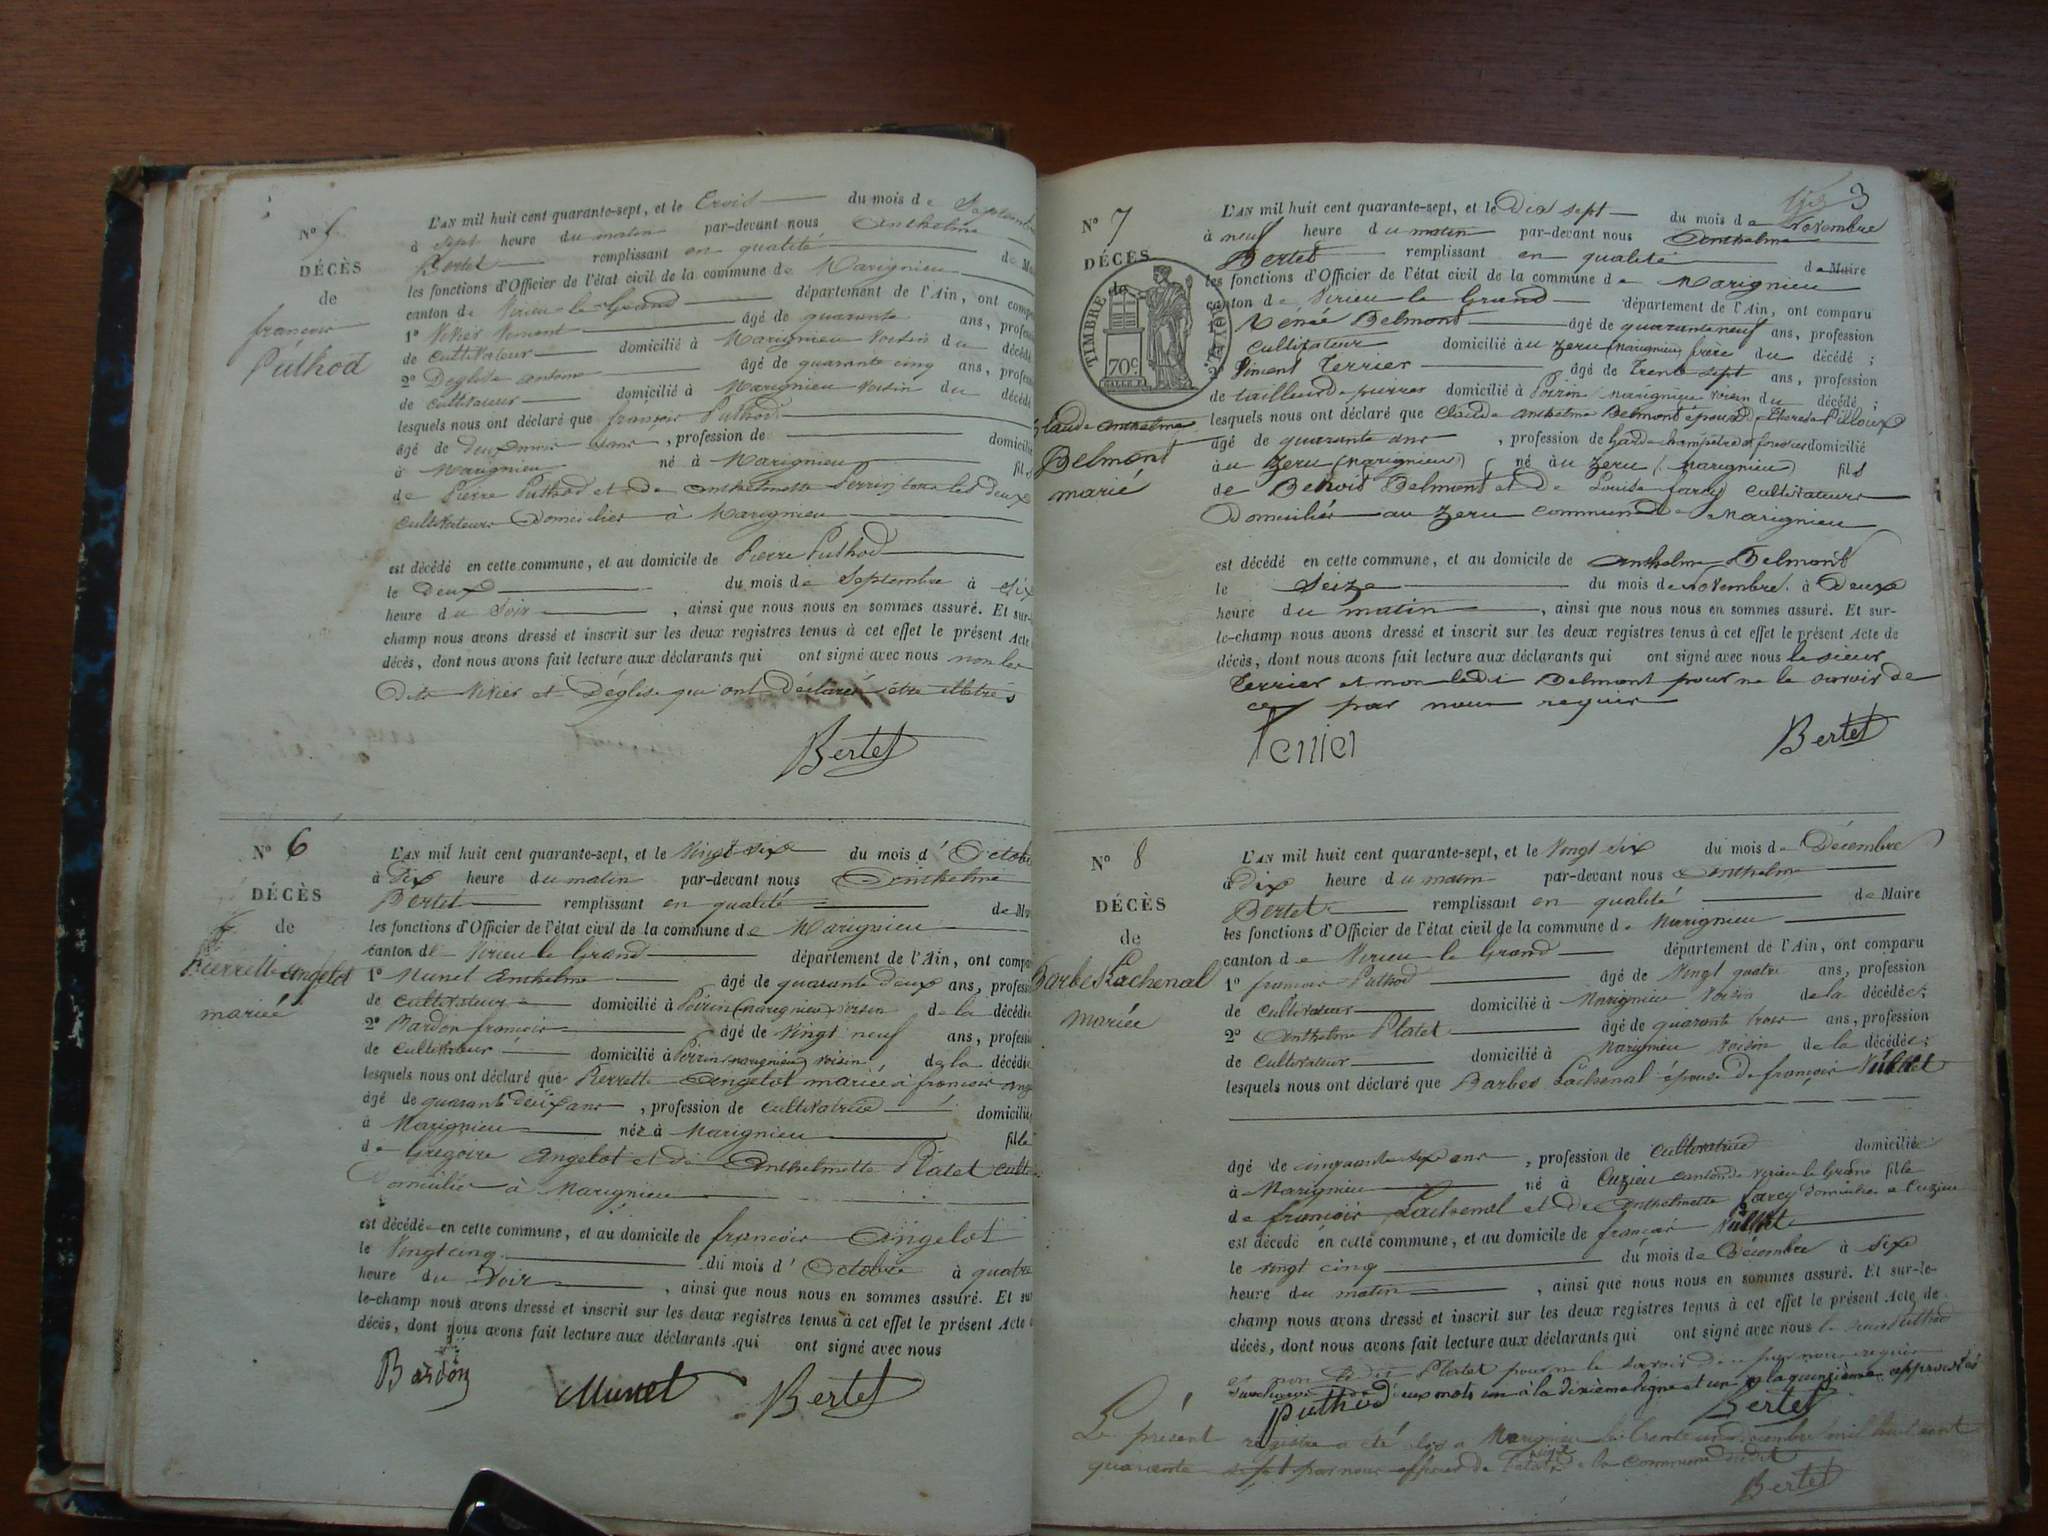 N°
DÉCÈS
de
françois
Puthod
L'AN mil huit cent quarante-sept, et le trois du mois de Septembre
à sept heure du matin par-devant nous Anthelme
Bertet remplissant en qualité de
les fonctions d'Officier de l'état civil de la commune de Marignieu
canton de Virieu le Grand département de l'Ain, ont
1° Vivier Vincent âgé de quarante ans,
de cultivateur domicilié à Marignieu voisin du décédé
2° Déglise antoine âgé de quarante cinq ans,
de cultivateur domicilié à Marignieu voisin du décédé
lesquels nous ont déclaré que françois Puthod
âgé de deux ans, profession de domicilié
à Marignieu né à Marignieu fils
de Pierre Puthod et de Anthelmette Perrin tous les deux
cultivateurs domiciliés à Marignieu
est décédé en cette commune, et au domicile de Pierre Puthod
le deux du mois de Septembre à six
heure du soir, ainsi que nous nous en sommes assuré. Et sur-
champ nous avons dressé et inscrit sur les deux registres tenus à cet effet le présent Acte
décès, dont nous avons fait lecture aux déclarants qui ont signé avec nous non les
dits Vivier et Déglise qui ont déclaré être illétrés
Bertet
N° 6
DÉCÈS
de
Pierrette Angelot
mariée
L'AN mil huit cent quarante-sept, et le vingt six du mois d'Octobre
à dix heure du matin par-devant nous Anthelme
Bertet remplissant en qualité de
les fonctions d'Officier de l'état civil de la commune de Marignieu
canton de Virieu le Grand département de l'Ain, ont
1° Munet Anthelme âgé de quarante deux ans,
de cultivateur domicilié à Poirin (Marignieu) voisin de la décédée
2° Bardon françois âgé de vingt neuf ans,
de cultivateur domicilié à Poirin (marignieu) voisin de la décédée
lesquels nous ont déclaré que Pierrette Angelot mariée à françois
âgé de quarante deux ans, profession de cultivatrice domiciliée
à Marignieu née à Marignieu fille
de Grégoire Angelot et de Anthelmette Platet
domiciliés à Marignieu
est décédée en cette commune, et au domicile de françois Angelot
le vingt cinq du mois d'Octobre à quatre
heure du soir, ainsi que nous nous en sommes assuré. Et
le-champ nous avons dressé et inscrit sur les deux registres tenus à cet effet le présent Acte
décès, dont nous avons fait lecture aux déclarants qui ont signé avec nous
Bardon Munet Bertet
3
N° 7
DÉCÈS
de
TIMBRE ROYAL
70c
Claude Anthelme
Belmont
marié
L'AN mil huit cent quarante-sept, et le Dix sept du mois de Novembre
à neuf heure du matin par-devant nous Anthelme
Bertet remplissant en qualité de Maire
les fonctions d'Officier de l'état civil de la commune de Marignieu
canton de Virieu le Grand département de l'Ain, ont comparu
Belmont âgé de quarante neuf ans, profession
cultivateur domicilié au zeru (marignieu) frère du décédé ;
Vincent Terrier âgé de trente sept ans, profession
de tailleur de pierres domicilié à Poirin (marignieu) voisin du décédé ;
lesquels nous ont déclaré que Claude anthelme Belmont époux de
âgé de quarante ans, profession de garde champêtre et domicilié
au zeru (marignieu) né au zeru (marignieu) fils
de Benoit Belmont et de Louise farcy cultivateurs
domiciliés au zeru commune de Marignieu
est décédé en cette commune, et au domicile de Anthelme Belmont
le Seize du mois de Novembre à Deux
heure du matin, ainsi que nous nous en sommes assuré. Et sur-
le-champ nous avons dressé et inscrit sur les deux registres tenus à cet effet le présent Acte de
décès, dont nous avons fait lecture aux déclarants qui ont signé avec nous le sieur
Terrier et non ledit Belmont pour ne le savoir de
ce par nous requis
Terrier Bertet
N° 8
DÉCÈS
de
Barbe Lachenal
mariée
L'AN mil huit cent quarante-sept, et le vingt six du mois de Décembre
à dix heure du matin par-devant nous Anthelme
Bertet remplissant en qualité de Maire
les fonctions d'Officier de l'état civil de la commune de Marignieu
canton de Virieu le Grand département de l'Ain, ont comparu
1° françois Puthod âgé de vingt quatre ans, profession
de cultivateur domicilié à Marignieu voisin de la décédée ;
2° Anthelme Platet âgé de quarante trois ans, profession
de cultivateur domicilié à Marignieu voisin de la décédée ;
lesquels nous ont déclaré que Barbe Lachenal épouse de françois
âgé de cinquante six ans, profession de cultivatrice domiciliée
à Marignieu né à Cuzieu canton de virieu le Grand fille
de françois Lachenal et de Anthelmette farcy domiciliés à Cuzieu
est décédé en cette commune, et au domicile de françois
le vingt cinq du mois de Décembre à six
heure du matin, ainsi que nous nous en sommes assuré. Et sur-le-
champ nous avons dressé et inscrit sur les deux registres tenus à cet effet le présent Acte de
décès, dont nous avons fait lecture aux déclarants qui ont signé avec nous le sieur Puthod
et non ledit Platet pour ne le savoir de ce par nous requis
deux mots un à la dixième ligne et un à la quinzième approuvés
Puthod Bertet
Le présent registre a été clos à Marignieu le trente un décembre mil huit cent
quarante sept par nous officier de l'état civil de la commune dudit
Bertet